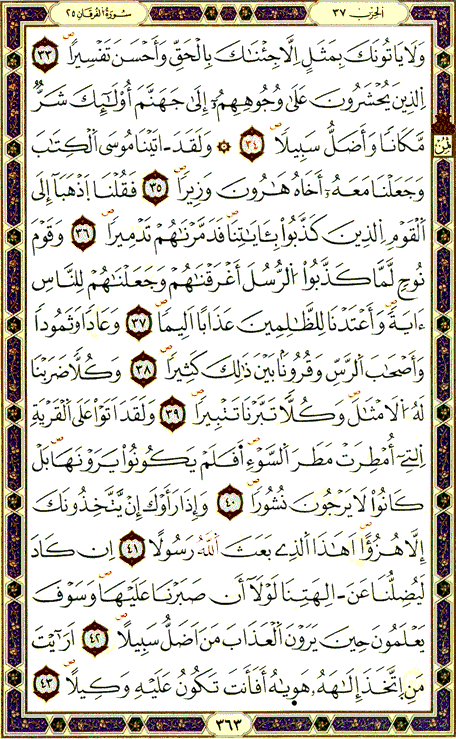 الحزب ٣٧ سورة الفرقان ٢٥
وَلَا يَاتُونَكَ بِمَثَلٍ اِلَّا جِئْنَٰكَ بِالْحَقِّ وَأَحْسَنَ تَفْسِيرًا ٣٣
اَ۬لذِينَ يُحْشَرُونَ عَلَىٰ وُجُوهِهِمُۥٓ إِلَىٰ جَهَنَّمَ أُوْلَٰٓئِكَ شَرّٞ
مَّكَانٗا وَأَضَلُّ سَبِيلٗا ٣٤ ۞ وَلَقَدَ اٰتَيْنَا مُوسَى اَ۬لْكِتَٰبَ
وَجَعَلْنَا مَعَهُۥٓ أَخَاهُ هَٰرُونَ وَزِيرٗا ٣٥ فَقُلْنَا اَ۪ذْهَبَآ إِلَى
اَ۬لْقَوْمِ اِ۬لذِينَ كَذَّبُواْ بِـَٔايَٰتِنَا فَدَمَّرْنَٰهُمْ تَدْمِيرٗا ٣٦ وَقَوْمَ
نُوحٖ لَّمَّا كَذَّبُواْ اُ۬لرُّسُلَ أَغْرَقْنَٰهُمْ وَجَعَلْنَٰهُمْ لِلنَّاسِ
ءَايَةٗ وَأَعْتَدْنَا لِلظَّٰلِمِينَ عَذَابًا اَلِيمٗا ٣٧ وَعَادٗا وَثَمُودٗا
وَأَصْحَٰبَ اَ۬لرَّسِّ وَقُرُونَۢا بَيْنَ ذَٰلِكَ كَثِيرٗا ٣٨ وَكُلّٗا ضَرَبْنَا
لَهُ اُ۬لَامْثَٰلَ وَكُلّٗا تَبَّرْنَا تَتْبِيرٗا ٣٩ وَلَقَدَ اَتَوْاْ عَلَى اَ۬لْقَرْيَةِ
اِ۬لتِےٓ أُمْطِرَتْ مَطَرَ اَ۬لسَّوْءِ اَفَلَمْ يَكُونُواْ يَرَوْنَهَا بَلْ
كَانُواْ لَا يَرْجُونَ نُشُورٗا ٤٠ وَإِذَا رَأَوْكَ إِنْ يَّتَّخِذُونَكَ
إِلَّا هُزُؤًا اَهَٰذَا اَ۬لذِے بَعَثَ اَ۬للَّهُ رَسُولًا ٤١ اِن كَادَ
لَيُضِلُّنَا عَنَ اٰلِهَتِنَا لَوْلَآ أَن صَبَرْنَا عَلَيْهَا وَسَوْفَ
يَعْلَمُونَ حِينَ يَرَوْنَ اَ۬لْعَذَابَ مَنَ اَضَلُّ سَبِيلًا ٤٢ اَرَٰٓيْتَ
مَنِ اِ۪تَّخَذَ إِلَٰهَهُۥ هَوَيٰهُ أَفَأَنتَ تَكُونُ عَلَيْهِ وَكِيلًا ٤٣
٣٦٣
ثمن